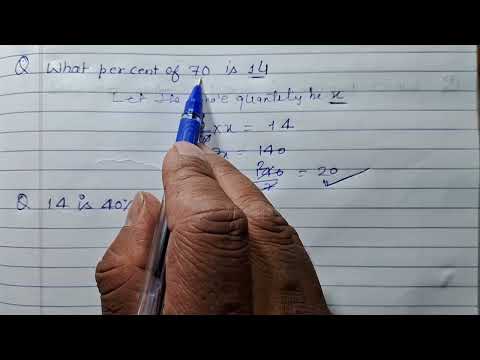 Q What percent of 70 is 14
Let quantity be x
x x = 14
x = 140
140 = 20
7
Q 14 is 40%